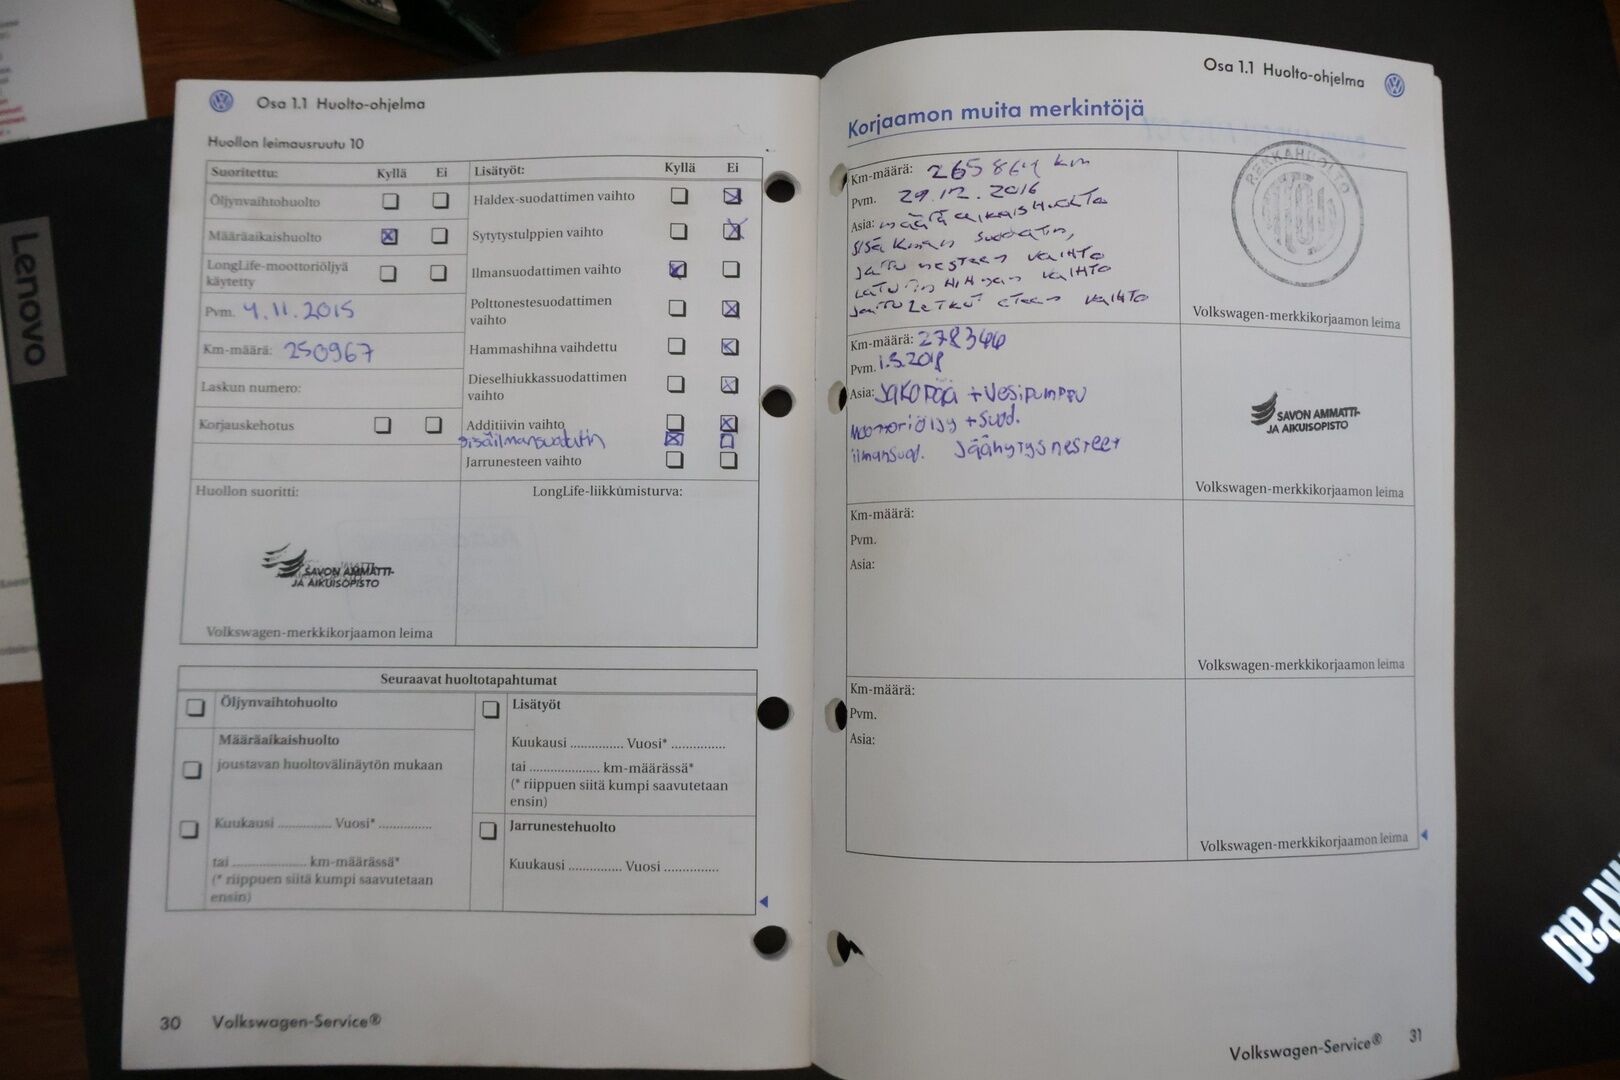 Osa 1.1 Huolto-ohjelma
Huollon leimausruutu 10
Suoritettu: Kyllä Ei
Öljynvaihtohuolto
Määräaikaishuolto
LongLife-moottoriöljyä
käytetty
Pvm. 4.11.2015
Km-määrä: 250967
Laskun numero:
Korjauskehotus
Lisätyöt: Kyllä Ei
Haldex-suodattimen vaihto
Sytytystulppien vaihto
Ilmansuodattimen vaihto
Polttonestesuodattimen
vaihto
Hammashihna vaihdettu
Dieselhiukkassuodattimen
vaihto
Additiivin vaihto
sisäilmansuodatin
Jarrunesteen vaihto
Huollon suoritti:
SAVON AMMATTI-
JA AIKUISOPISTO
Volkswagen-merkkikorjaamon leima
LongLife-liikkumisturva:
Seuraavat huoltotapahtumat
Öljynvaihtohuolto
Määräaikaishuolto
joustavan huoltovälinäytön mukaan
Kuukausi ............... Vuosi* ...............
tai .................... km-määrässä*
(* riippuen siitä kumpi saavutetaan
ensin)
Lisätyöt
Kuukausi ............... Vuosi* ...............
tai .................... km-määrässä*
(* riippuen siitä kumpi saavutetaan
ensin)
Jarrunestehuolto
Kuukausi ............... Vuosi ...............
30 Volkswagen-Service®
Osa 1.1 Huolto-ohjelma
Korjaamon muita merkintöjä
Km-määrä: 265864 km
Pvm. 29.12.2016
Asia: määräaikaishuolto
suodatin,
vaihto
vaihto
vaihto
REKKAHUOLTO
Volkswagen-merkkikorjaamon leima
Km-määrä: 278366
Pvm. 1.3.2018
Asia: Jakopää + Vesipumppu
Moottoriöljy + suod.
ilmansuod. Jäähytysnesteet
SAVON AMMATTI-
JA AIKUISOPISTO
Volkswagen-merkkikorjaamon leima
Km-määrä:
Pvm.
Asia:
Volkswagen-merkkikorjaamon leima
Km-määrä:
Pvm.
Asia:
Volkswagen-merkkikorjaamon leima
Volkswagen-Service® 31
Lenovo